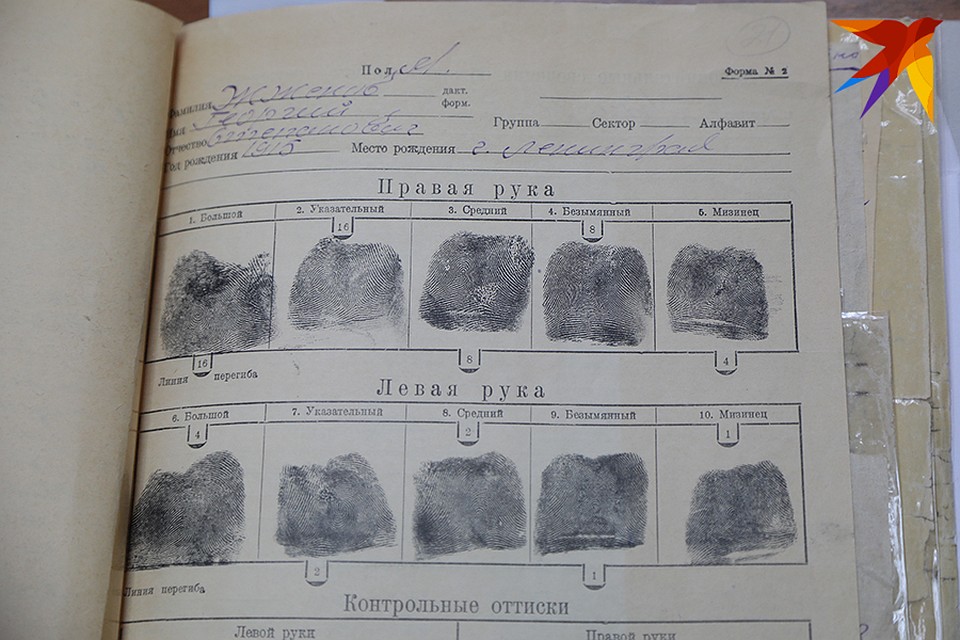 21
Пол М.
Форма № 2
Фамилия Жженов
дакт. форм.
Имя Георгий
Группа Сектор Алфавит
Отчество Степанович
Год рождения 1915 Место рождения г. Ленинград
Правая рука
1. Большой 2. Указательный 3. Средний 4. Безымянный 5. Мизинец
16 8
16 8 4
Линия перегиба
Левая рука
6. Большой 7. Указательный 8. Средний 9. Безымянный 10. Мизинец
4 2 1
2 1
Линия перегиба
Контрольные оттиски
Левой руки Правой руки